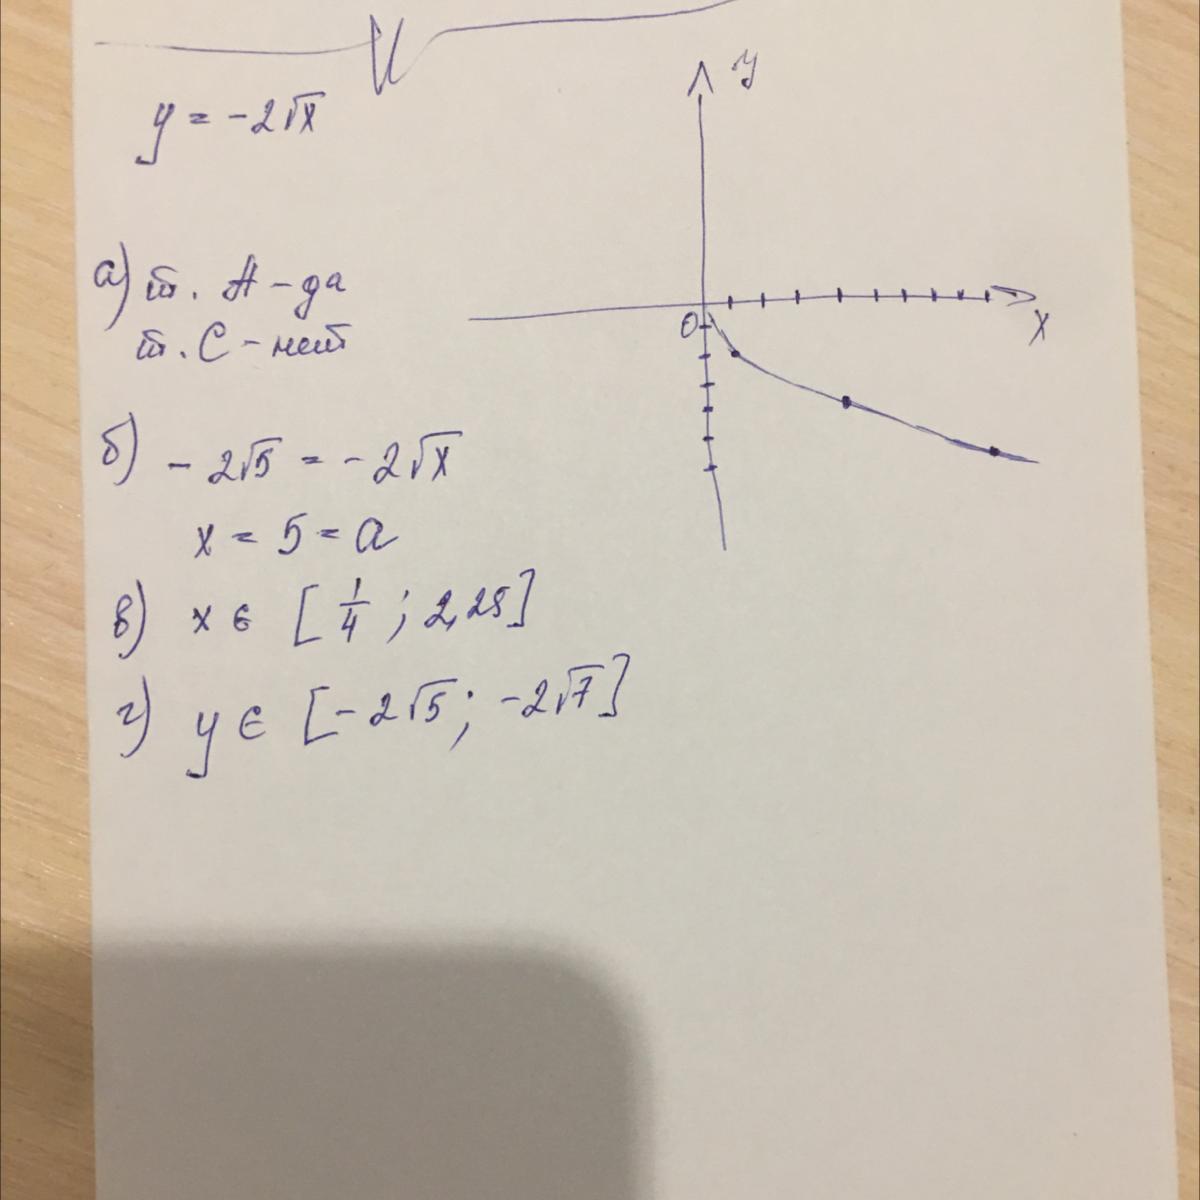 y = -2√x
а) т. А - да
т. С - нет
б) - 2√5 = - 2√x
x = 5 = a
в) x ∈ [1/4 ; 2,25]
г) y ∈ [-2√5 ; -2√7]
y
0
x